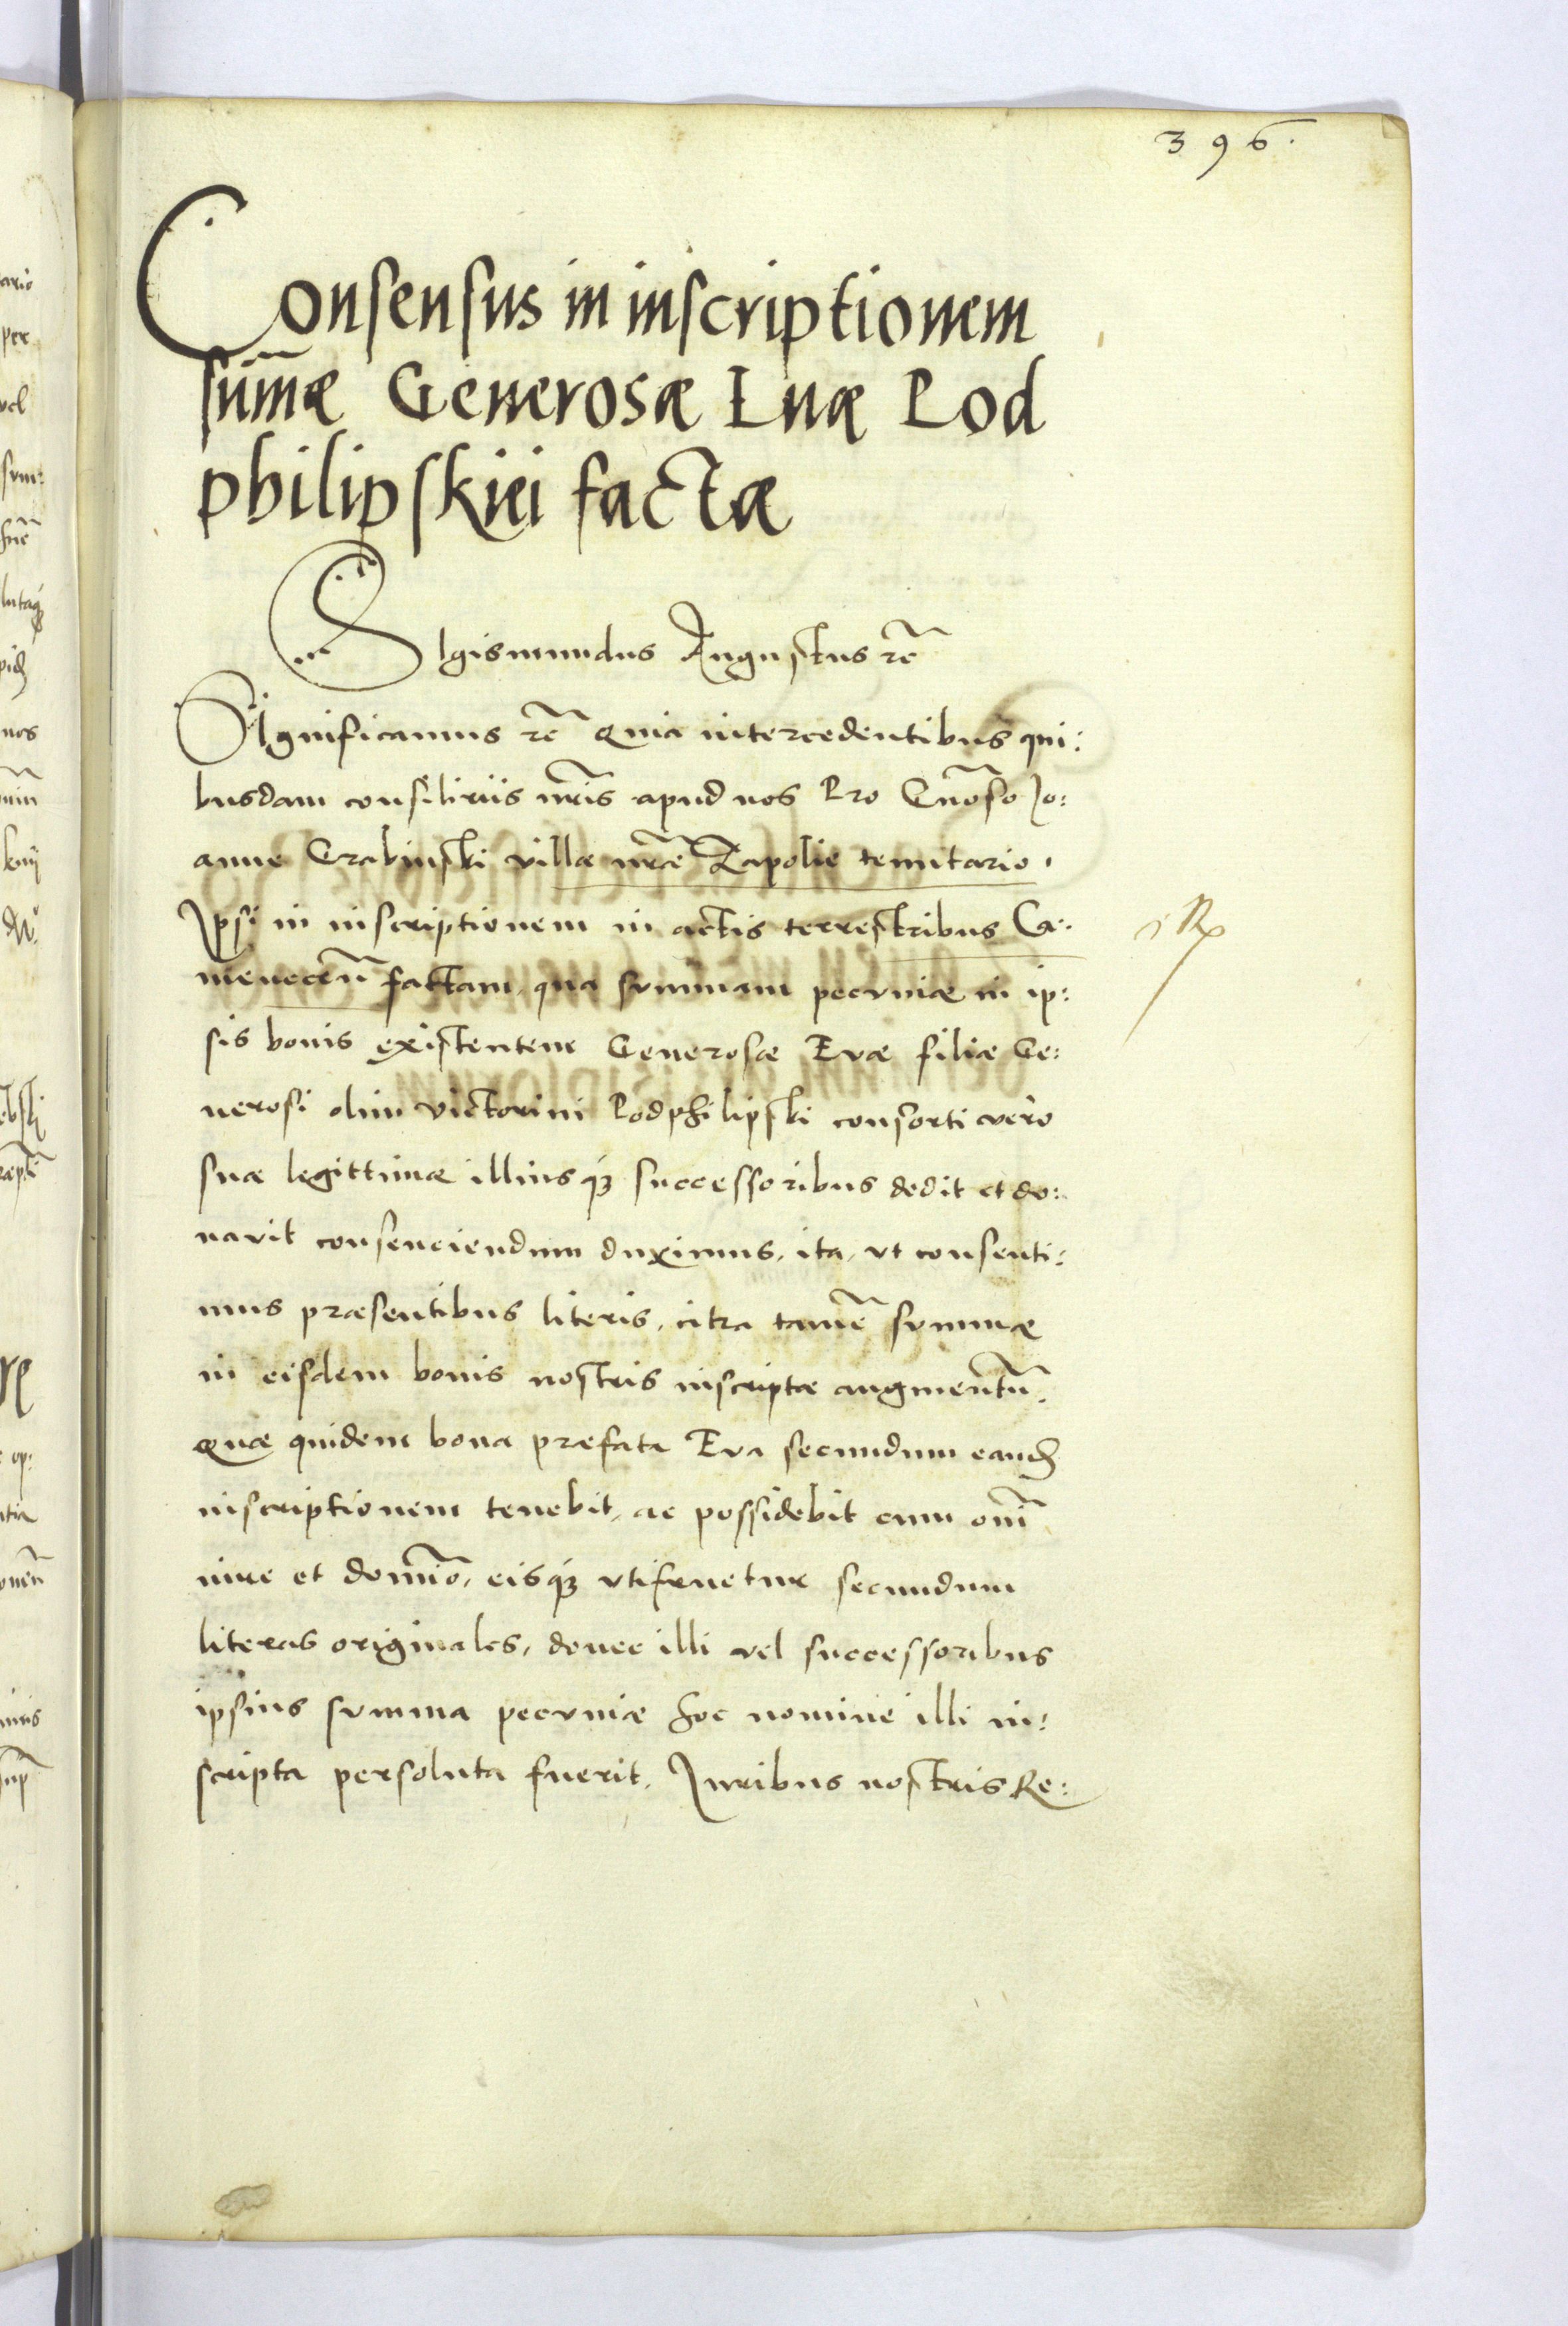 396.
Consensus in inscriptionem
sum̃æ Generosæ Euæ Pod
philipskiei factæ
SIgismundus Augustus rc̃
SIgnificamus rc̃ Quia intercedentibus qui:
busdam consiliriis nr̃is apud nos Pro Gñoso Jo:
anne Grabinski villæ nr̃æ Zapolie tenutario.
Ipsi in inscriptionem in actis terrestribus Ca:
menecen̄ factam, qua summam pecuniæ in ip:
sis bonis existentem Generosæ Euæ filiæ Ge:
nerosi olim victorini Podphilipski consorti vero
suæ legittimæ illiusqꝫ successoribus dedit et do:
navit consenciendum duximus, ita, vt consenti:
mus præsentibus literis, citra tamẽ summæ
in eisdem bonis nostris inscriptæ augmentũ.
Quæ quidem bona præfata Eua secundum eand̃
inscriptionem tenebit, ac possidebit cum om̃i
iure et domĩo, eisqꝫ vtifruetur secundum
literas originales, donec illi vel successoribus
ipsius summa pecuniæ hoc nomine illi in:
scripta persoluta fuerit. Iuribus nostris Re: